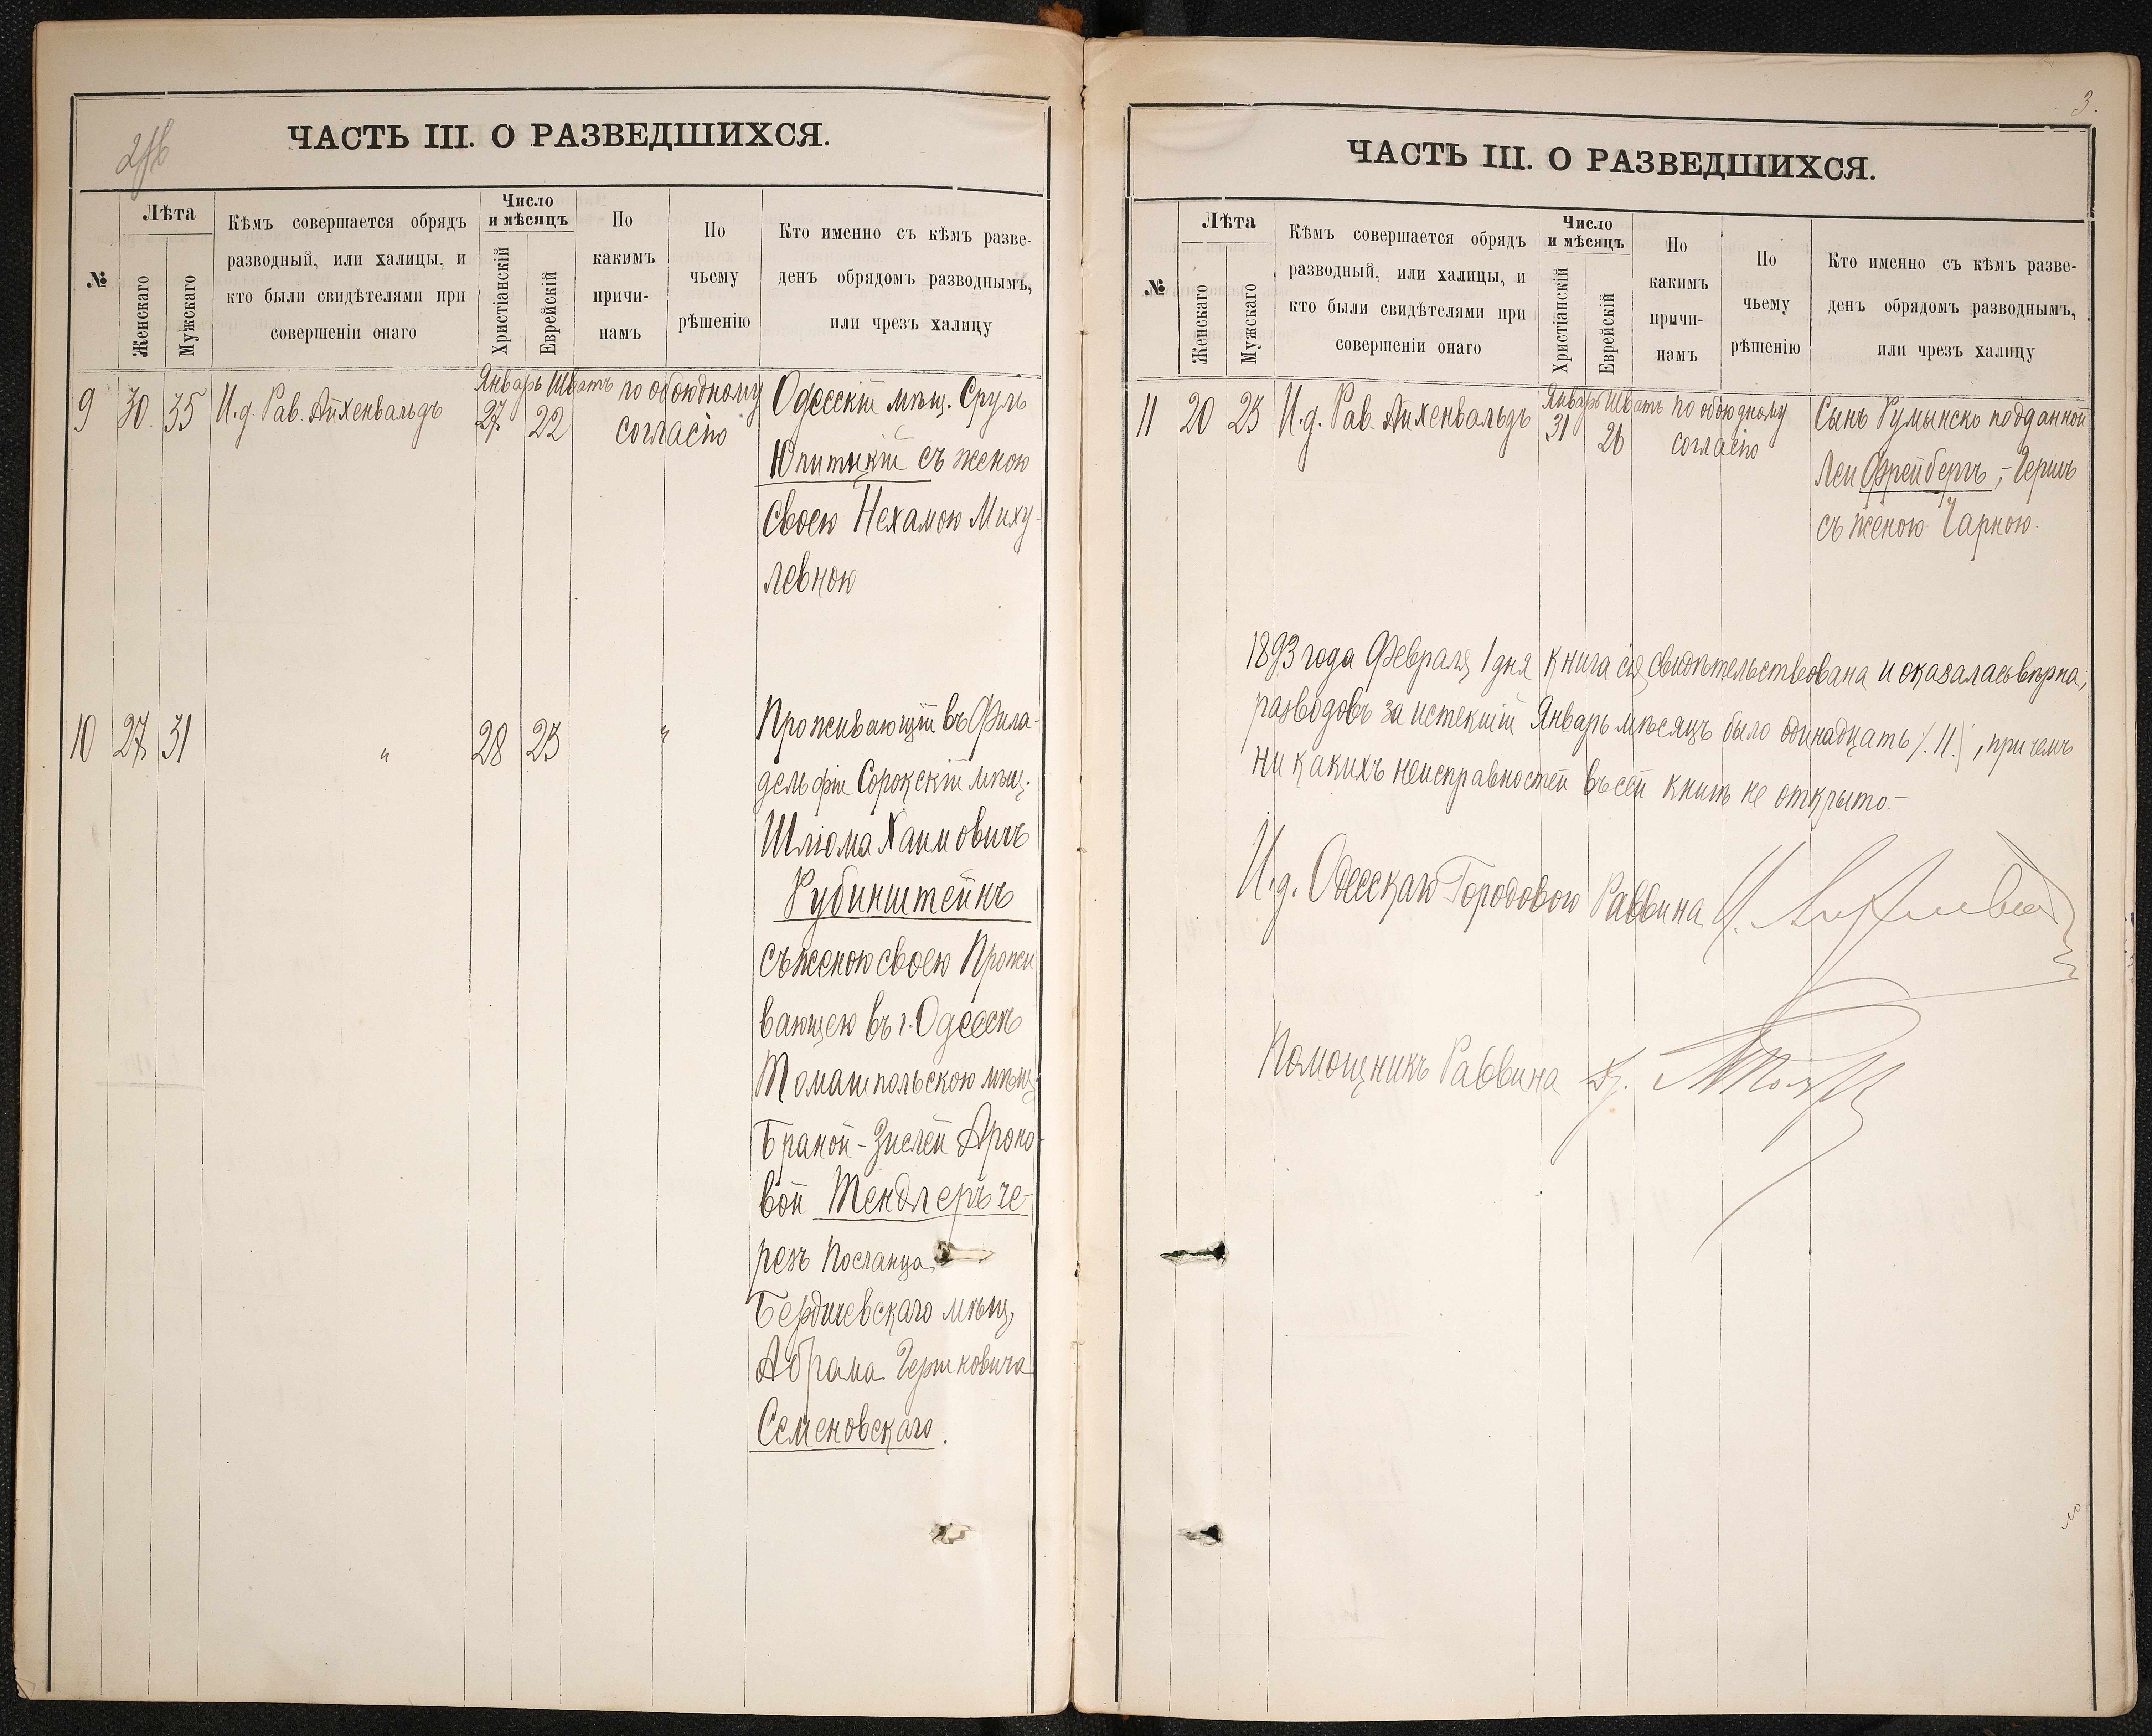 ЧАСТЬ III. О РАЗВЕДШИХСЯ.
№
Лѣта
Женскаго
Мужскаго
Кѣмъ совершается обрядъ
разводный, или халицы, и
кто были свидѣтелями при
совершеніи онаго
Число
и мѣсяцъ
Христіанскій
Еврейскій
По
какимъ
причи-
намъ
По
чьему
рѣшенію
Кто именно съ кѣмъ разве-
денъ обрядомъ разводнымъ,
или чрезъ халицу
9 30. 35 И.д. Рав. Айхенвальдъ
Январь Шватъ
27 22
по обоюдному
согласію
Одесскій мѣщ. Сруль
Юпиткій съ женою
своею Нехамою Миху-
левною
10 27 31 " 28 23 "
Проживающій въ Фила-
дельфіи Сорокскій мѣщ.
Шліома Хаимовичъ
Рубинштейнъ
съ женою своею Прожи
вающею въ г. Одессѣ
Томашпольскою мѣщ.
Браной-Зислей Ароно-
вой Тендлеръ че-
резъ Посланца
Бердичевскаго мѣщ.
Абрама Гершковича
Семеновскаго.
3.
ЧАСТЬ III. О РАЗВЕДШИХСЯ.
№
Лѣта
Женскаго
Мужскаго
Кѣмъ совершается обрядъ
разводный, или халицы, и
кто были свидѣтелями при
совершеніи онаго
Число
и мѣсяцъ
Христіанскій
Еврейскій
По
какимъ
причи-
намъ
По
чьему
рѣшенію
Кто именно съ кѣмъ разве-
денъ обрядомъ разводнымъ,
или чрезъ халицу
11 20 23 И.д. Рав. Айхенвальдъ
Январь Шватъ
31 26
по обоюдному
согласію
Сынъ Румынско подданной
Леи Фрейбергъ,- Гершъ
съ женою Чарною.
1893 года Февраля 1 дня книга сія свидѣтельствована и оказалась вѣрна;
разводовъ за истекшій Январь мѣсяцъ было одинадцать /.11./, при чемъ
ни какихъ неисправностей въ сей книгѣ не открыто.-
И.д. Одесскаго Городового Раввина
Помощникъ Раввина